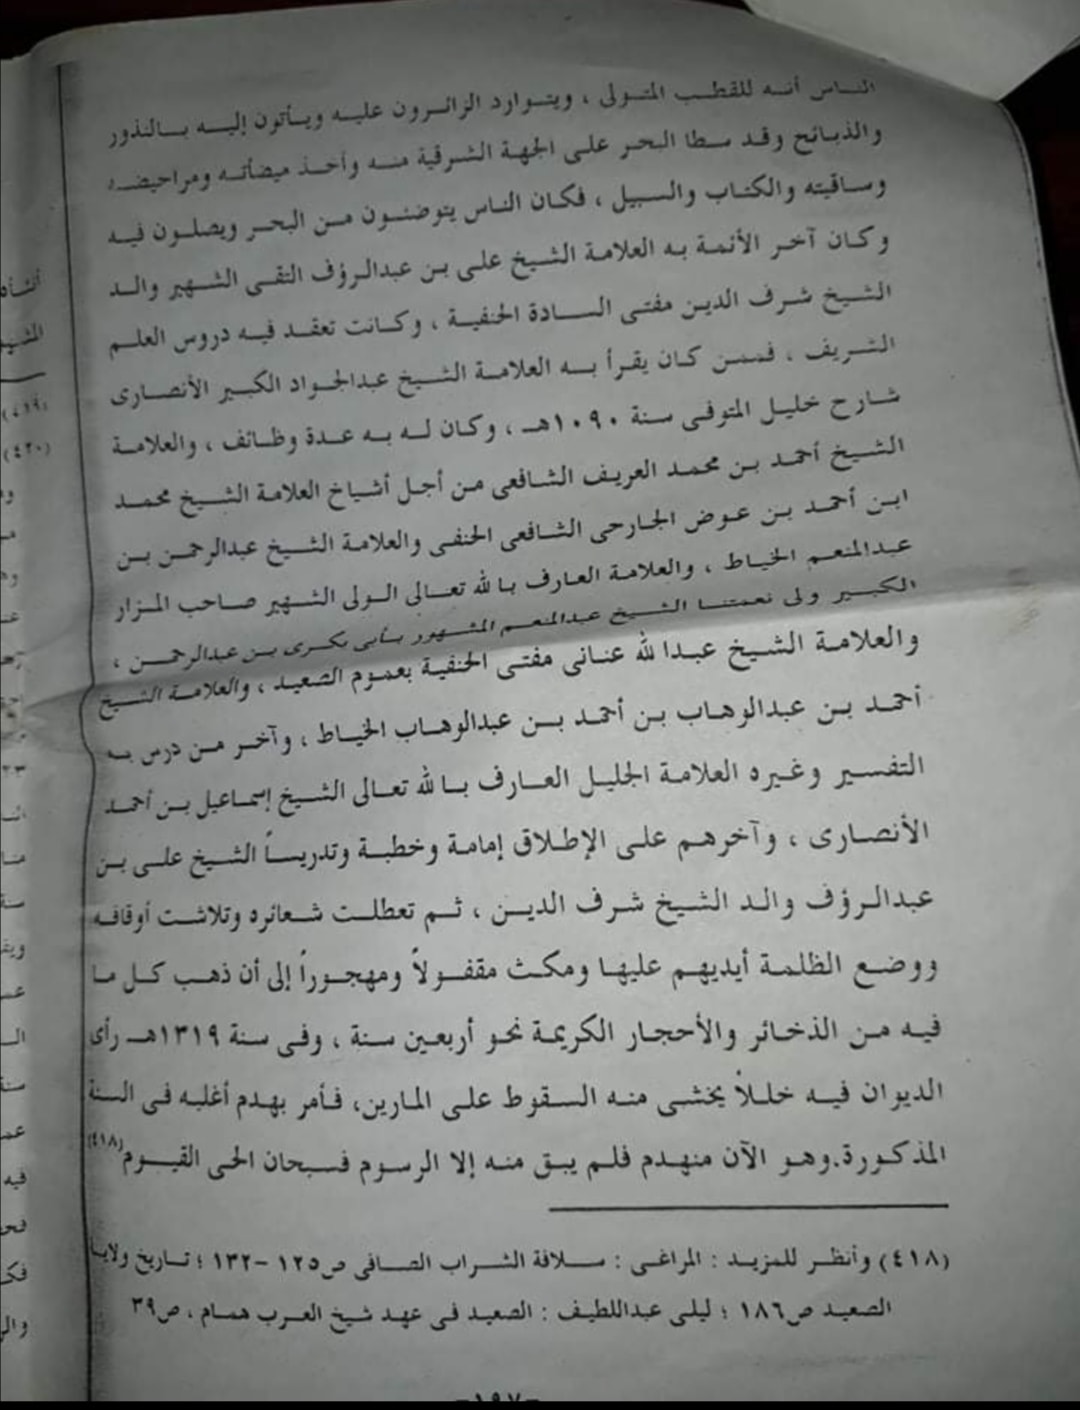 الناس أنه للقطب المتولى ، ويتوارد الزائرون عليه ويأتون إليه بالنذور
والذبائح وقد سطا البحر على الجهة الشرقية منه وأخذ ميضأته ومراحيضه
وساقيته والكتاب والسبيل ، فكان الناس يتوضئون من البحر ويصلون فيه
وكان آخر الأئمة به العلامة الشيخ على بن عبدالرؤف التقى الشهير والد
الشيخ شرف الدين مفتى السادة الحنفية ، وكانت تعقد فيه دروس العلم
الشريف ، فممن كان يقرأ به العلامة الشيخ عبدالجواد الكبير الأنصارى
شارح خليل المتوفى سنة ١٠٩٠هـ ، وكان له به عدة وظائف ، والعلامة
الشيخ أحمد بن محمد العريف الشافعى من أجل أشياخ العلامة الشيخ محمد
ابن أحمد بن عوض الجارحى الشافعى الحنفى والعلامة الشيخ عبدالرحمن بن
عبدالمنعم الخياط ، والعلامة العارف بالله تعالى الولى الشهير صاحب المزار
الكبير ولى نعمتنا الشيخ عبدالمنعم المشهور بأبى بكرى بن عبدالرحمن ،
والعلامة الشيخ عبدالله عنانى مفتى الحنفية بعموم الصعيد ، والعلامة الشيخ
أحمد بن عبدالوهاب بن أحمد بن عبدالوهاب الخياط ، وآخر من درس به
التفسير وغيره العلامة الجليل العارف بالله تعالى الشيخ إسماعيل بن أحمد
الأنصارى ، وآخرهم على الإطلاق إمامة وخطبة وتدريساً الشيخ على بن
عبدالرؤف والد الشيخ شرف الدين ، ثم تعطلت شعائره وتلاشت أوقافه
ووضع الظلمة أيديهم عليها ومكث مقفولاً ومهجوراً إلى أن ذهب كل ما
فيه من الذخائر والأحجار الكريمة نحو أربعين سنة ، وفى سنة ١٣١٩هـ رأى
الديوان فيه خللاً يخشى منه السقوط على المارين، فأمر بهدم أغلبه فى السنة
المذكورة.وهو الآن منهدم فلم يبق منه إلا الرسوم فسبحان الحى القيوم(٤١٨)
(٤١٨) وأنظر للمزيد : المراغى : سلافة الشراب الصافى ص١٢٥ -١٣٢ ؛ تاريخ ولاية
الصعيد ص١٨٦ ؛ ليلى عبداللطيف : الصعيد فى عهد شيخ العرب همام ، ص٣٩
-١٩٧-